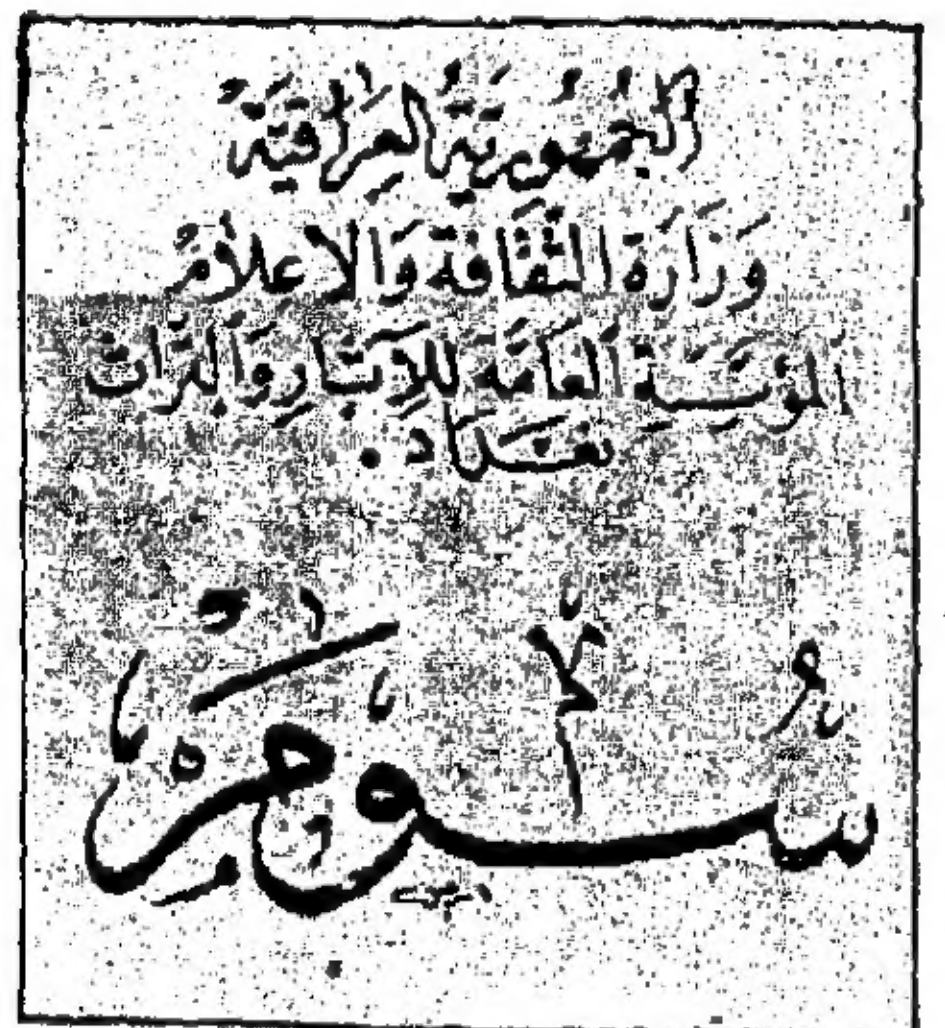 الجُمهُوريَّةُ العِرَاقيَّةُ
وَزَارَة الثَّقَافَة وَالاعلامُ
المؤسَّسَةِ العَامَّة للآثَارِ وَالتُراث
بغداد
سُومَر